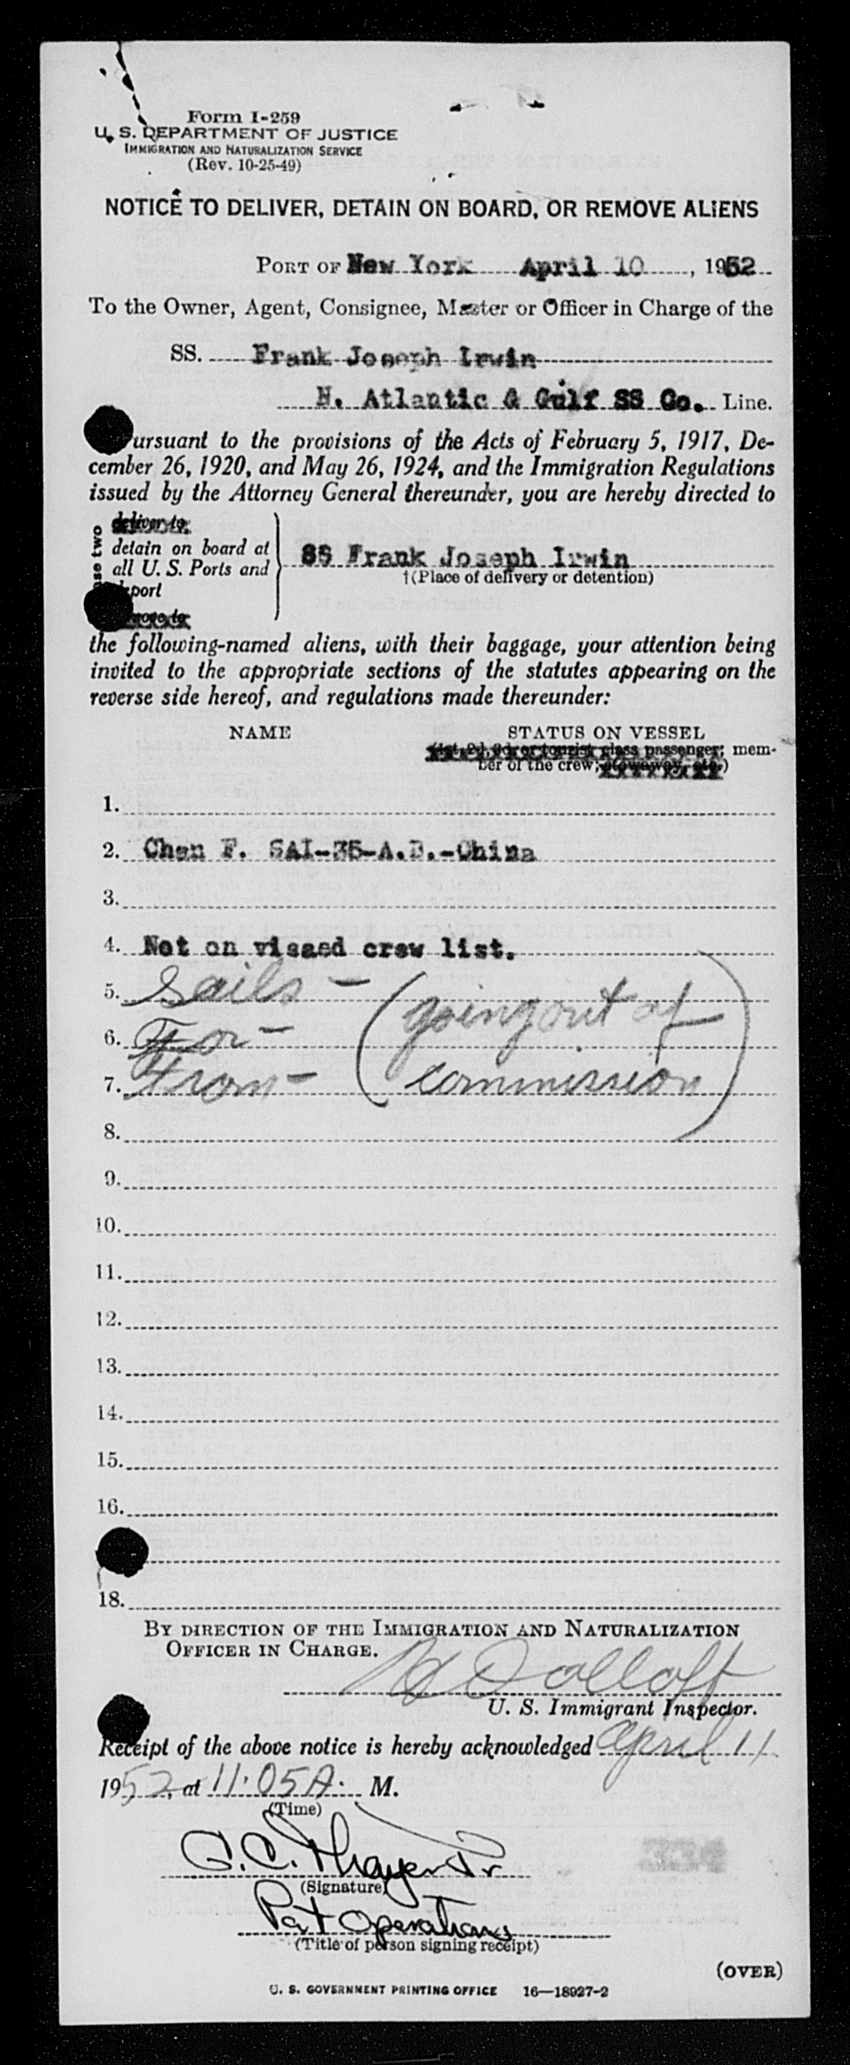 Form I-259
U. S. DEPARTMENT OF JUSTICE
IMMIGRATION AND NATURALIZATION SERVICE
(Rev. 10-25-49)
NOTICE TO DELIVER, DETAIN ON BOARD, OR REMOVE ALIENS
PORT OF New York April 10, 1952
To the Owner, Agent, Consignee, Master or Officer in Charge of the
SS. Frank Joseph Irwin
N. Atlantic & Gulf SS Co. Line.
ursuant to the provisions of the Acts of February 5, 1917, De-
cember 26, 1920, and May 26, 1924, and the Immigration Regulations
issued by the Attorney General thereunder, you are hereby directed to
deliver to
detain on board at
all U. S. Ports and
port
two
SS Frank Joseph Irwin
†(Place of delivery or detention)
the following-named aliens, with their baggage, your attention being
invited to the appropriate sections of the statutes appearing on the
reverse side hereof, and regulations made thereunder:
NAME STATUS ON VESSEL
(1st, 2d, 3d, or tourist class passenger; mem-
ber of the crew; stowaway, etc.)
1.
2. Chen F. SAI-35-A.B.-China
3.
4. Not on visaed crew list.
5. Sails - (going out of
6. For -
7. From - commission)
8.
9.
10.
11.
12.
13.
14.
15.
16.
18.
BY DIRECTION OF THE IMMIGRATION AND NATURALIZATION
OFFICER IN CHARGE.
U. S. Immigrant Inspector.
Receipt of the above notice is hereby acknowledged April 11
1952, at 11:05 A. M.
(Time)
G. C. Thayer Jr
(Signature)
Port Operations
(Title of person signing receipt)
(OVER)
U. S. GOVERNMENT PRINTING OFFICE 16—18927-2